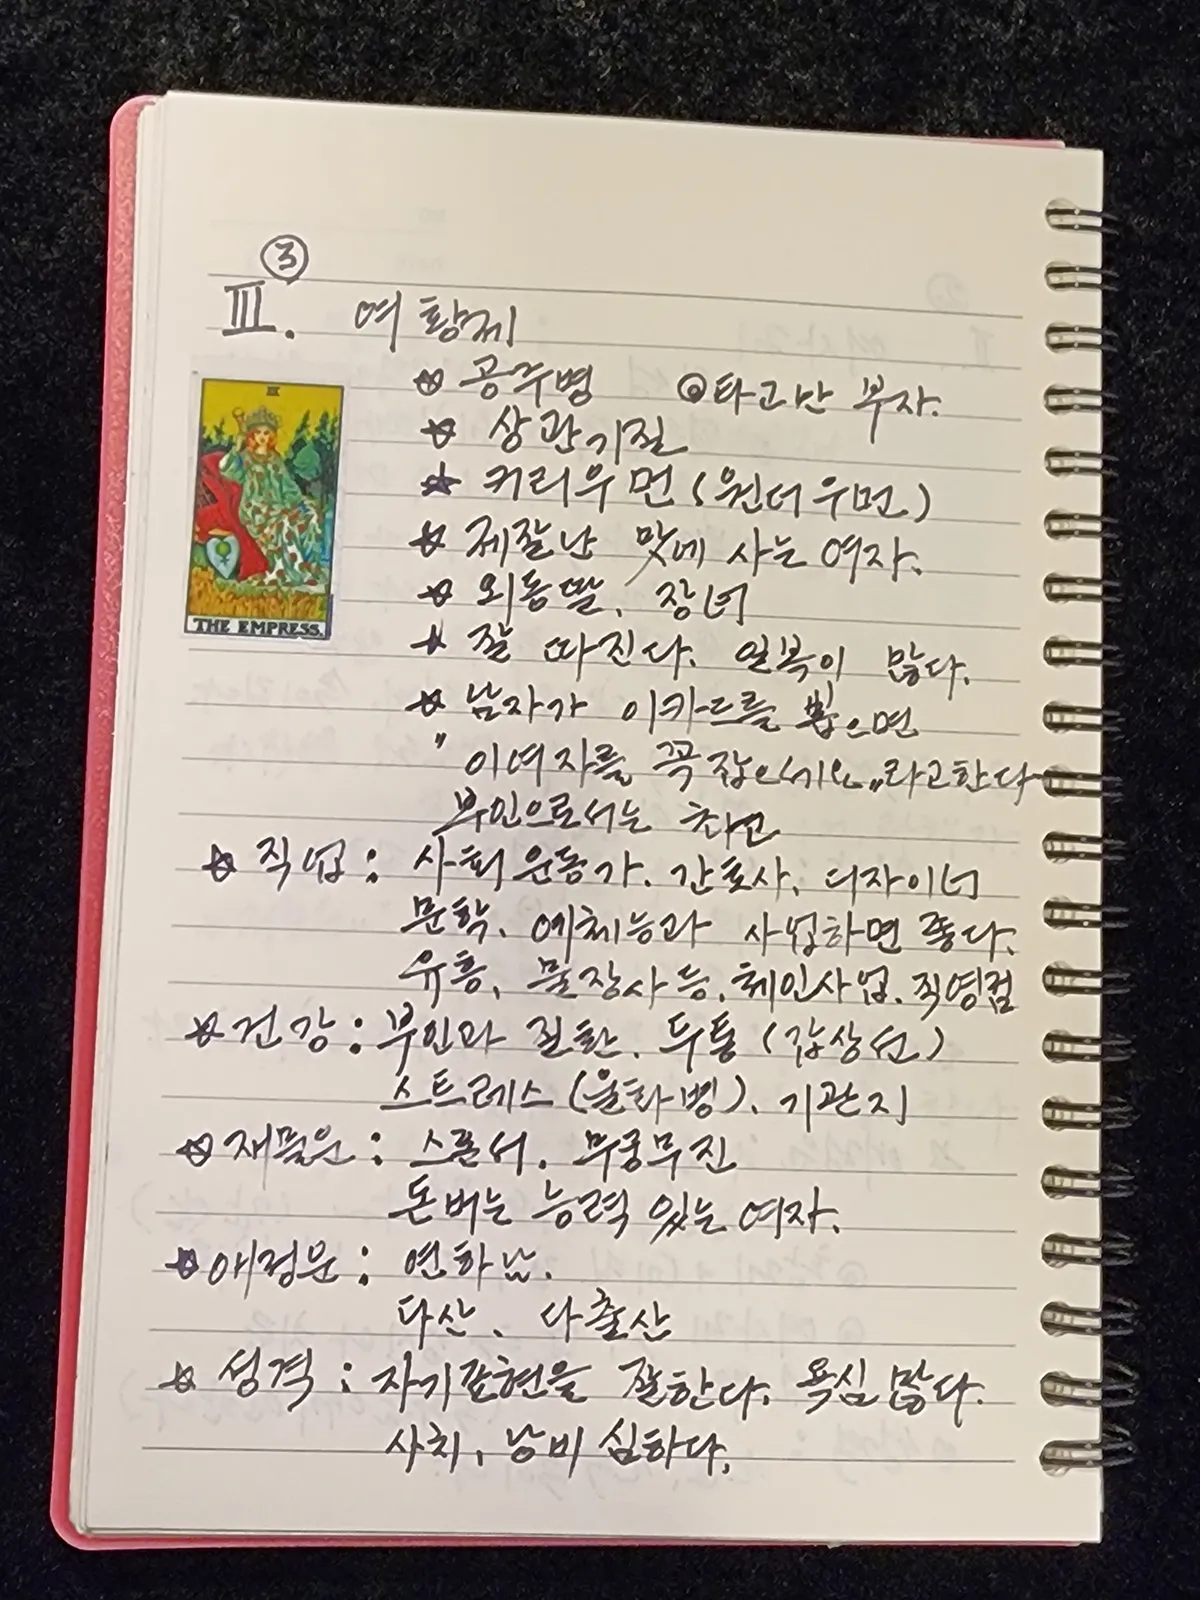 ③
Ⅲ. 여황제
☆ 공주병 ◎타고난 부자.
☆ 상관기질
★ 커리우먼(원더우먼)
☆ 제잘난 맛에 사는 여자.
☆ 외동딸, 장녀
☆ 잘 따진다. 일복이 많다.
☆ 남자가 이카드를 뽑으면
"이여자를 꼭 잡으세요"라고한다
부인으로서는 최고
☆ 직업: 사회운동가, 간호사, 디자이너
문학, 예체능과 사업하면 좋다.
유흥, 물장사 등, 체인사업, 직영점
☆ 건강: 부인과 질환, 두통 (갑상선)
스트레스 (울화병), 기관지
☆ 재물운: 스폰서, 무궁무진
돈버는 능력 있는 여자.
☆ 애정운: 연하남.
다산, 다출산
☆ 성격: 자기표현을 잘한다. 욕심 많다.
사치, 낭비 심하다.
Ⅲ
THE EMPRESS.